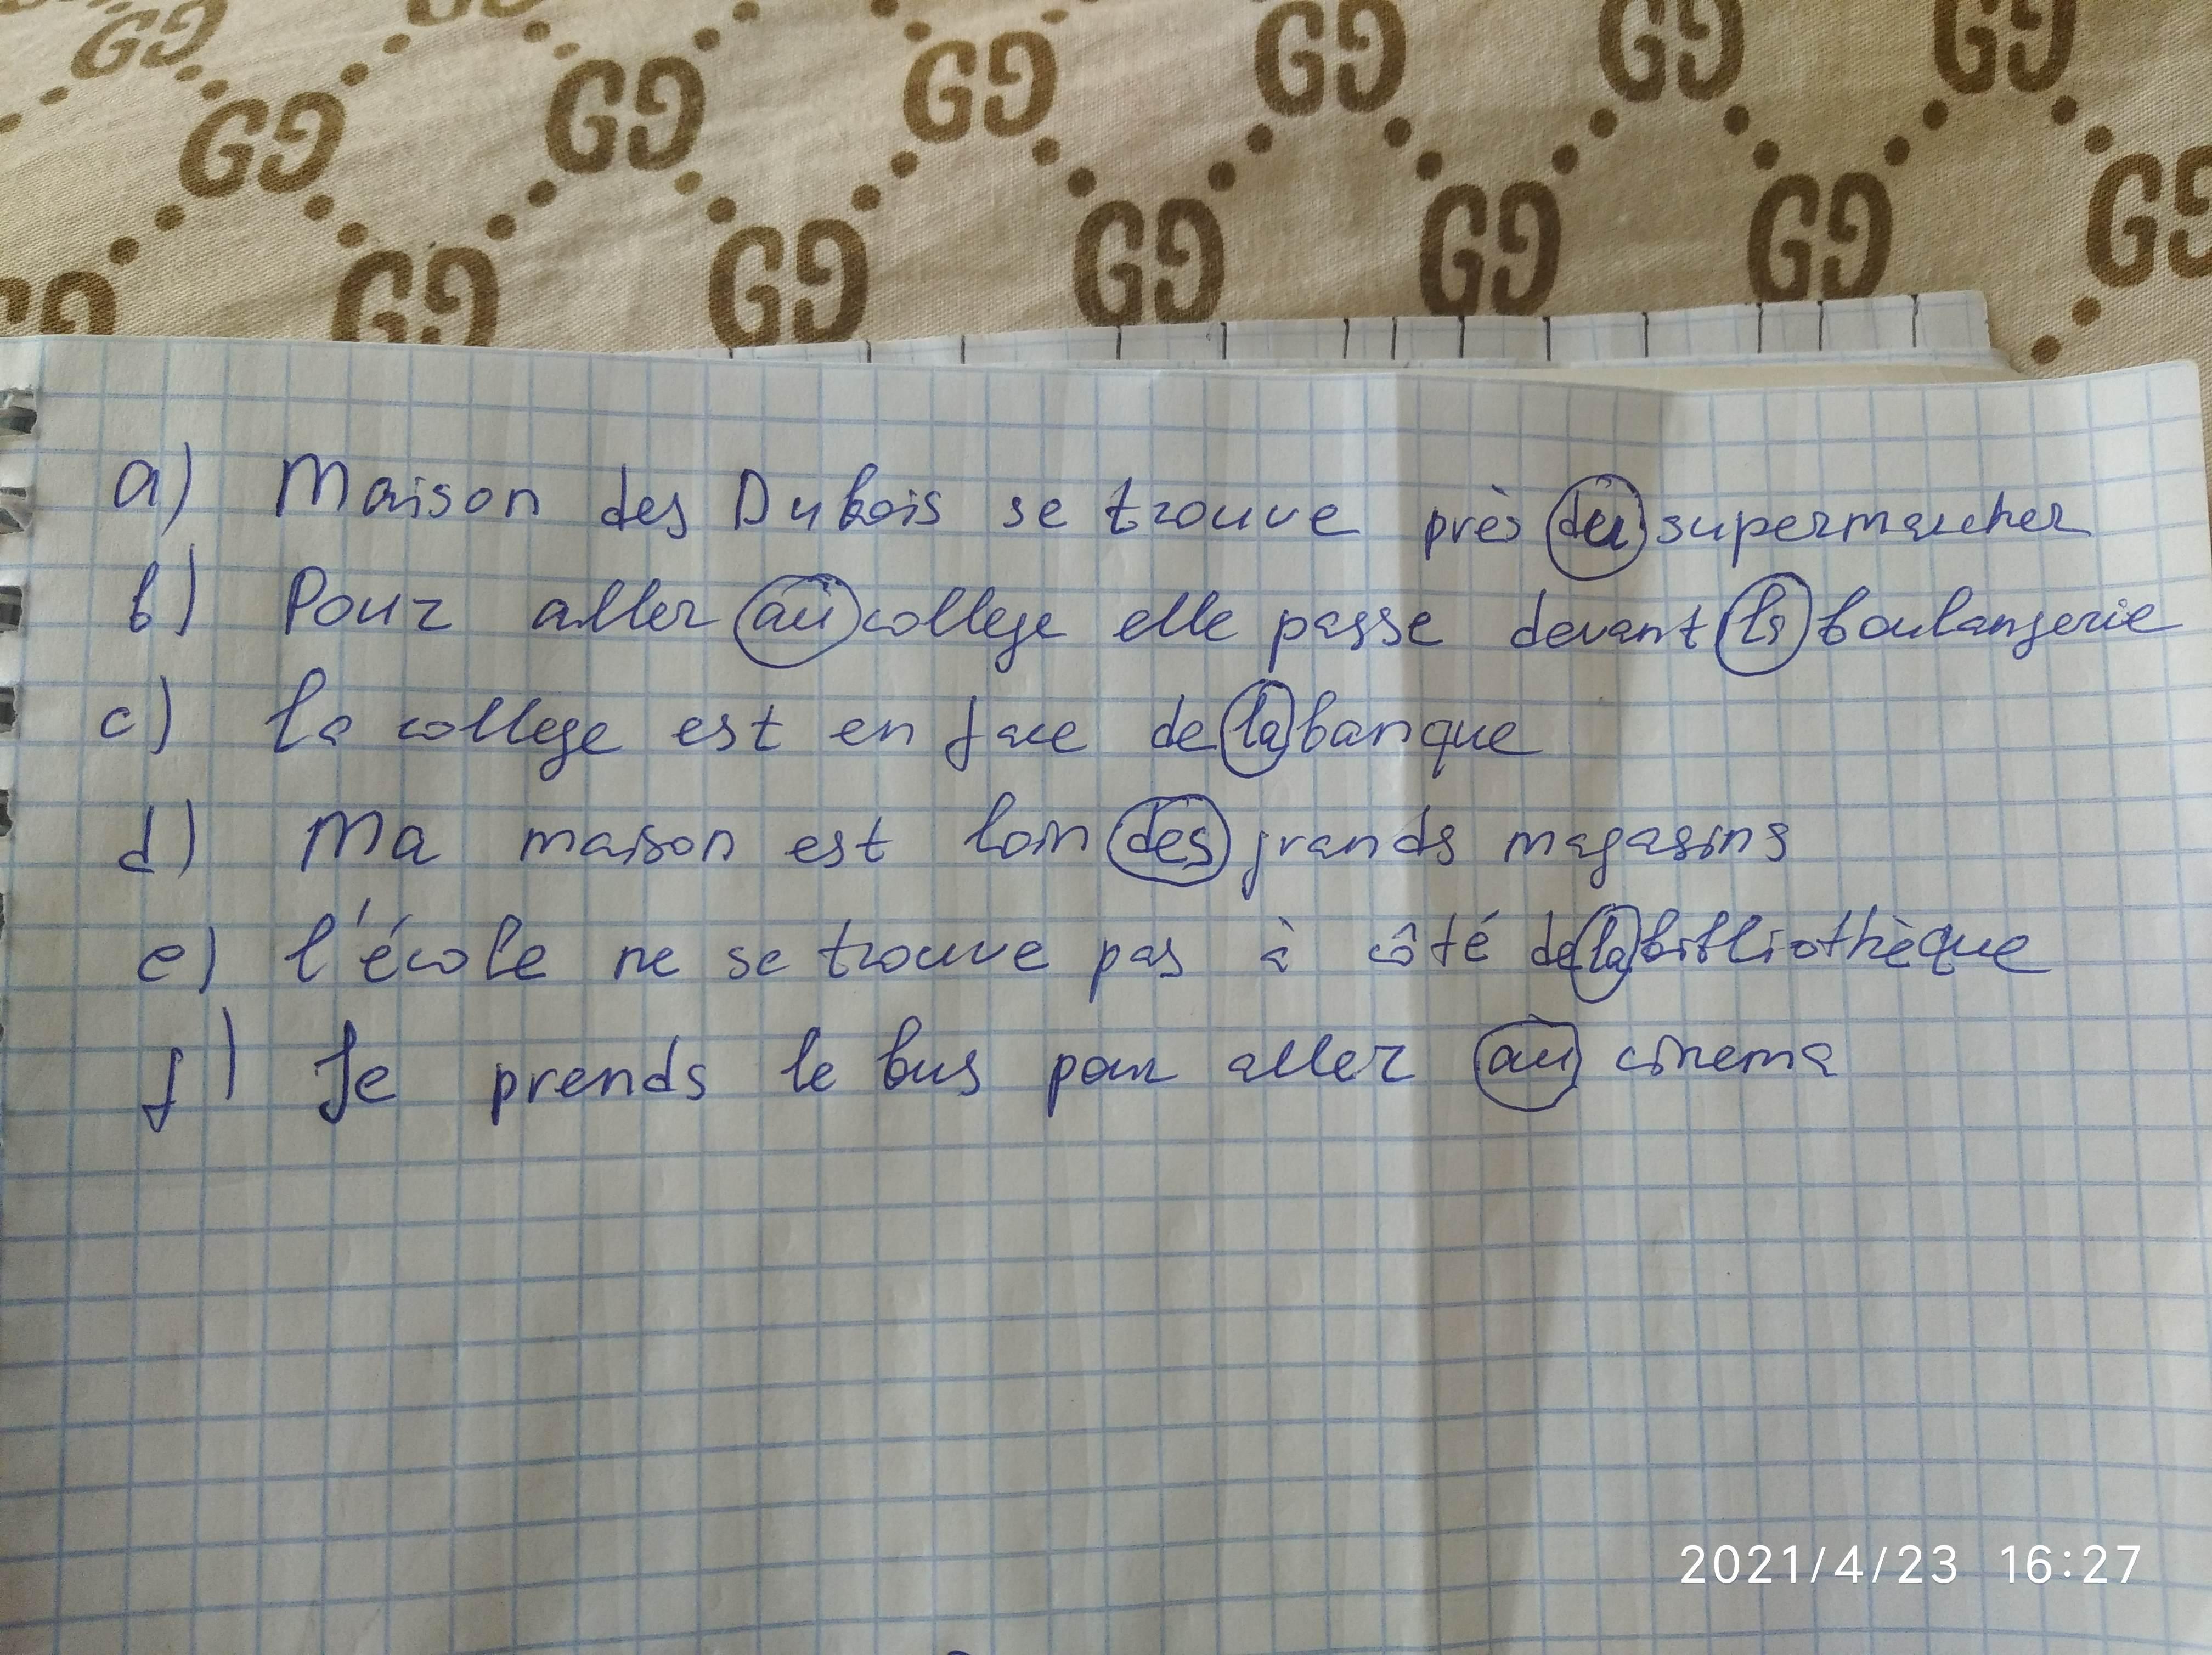 GG GG GG GG GG GG
GG GG GG GG GG GG
GG GG GG GG GG GG
a) Maison des Dubois se trouve près du supermarcher
b) Pour aller au college elle passe devant la boulangerie
c) la college est en face de la banque
d) Ma maison est loin des grands magasins
e) l'école ne se trouve pas à côté de la bibliothèque
f) Je prends le bus pour aller au cinema
2021/4/23 16:27